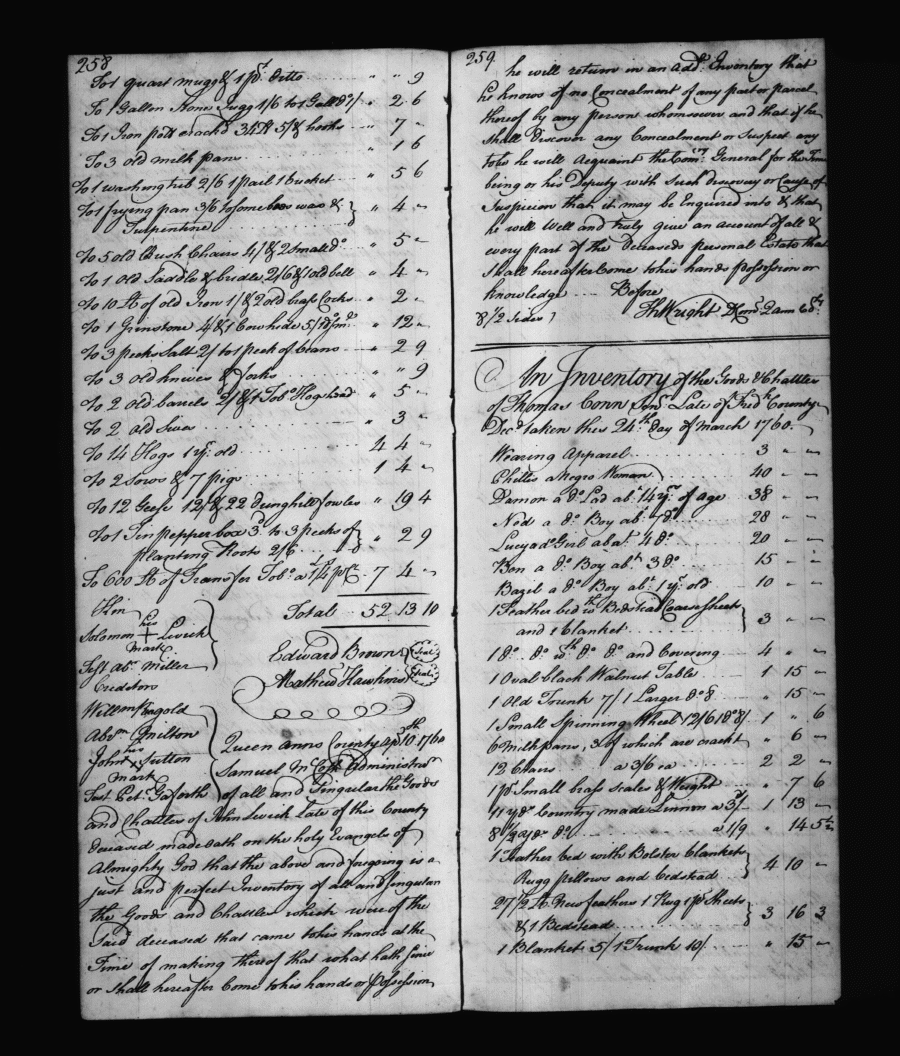 258
To 1 quart mugg & 1 pt ditto " " 9
To 1 Gallon Stone Jugg 1/6 to 1 Gall Do 1/ " 2 6
To 1 Iron pott crack'd 34 lb 5/ & hooks " 7 "
To 3 old milk pans " 1 6
To 1 washing tub 2/6 1 pail 1 bucket " 5 6
To 1 frying pan 3/6 to some bees wax & } " 4 "
Turpentine
To 5 old Rush Chairs 4/ & 2 small do " 5 "
To 1 old Saddle & bridle 2/6 & 1 old bell " 4 "
To 10 lb of old Iron 1/ & 2 old brass Cocks " 2 "
To 1 Grinstone 4/ & 1 Cow hide 5/ " 12 "
To 3 pecks Salt 2/ to 1 peck of beans " 2 9
To 3 old knives & forks " " 9
To 2 old barrels 2/ & 1 Tobo Hogshead " 5 "
To 2 old " 3 "
To 14 Hogs 1 yr old 4 4 "
To 2 Sows & 7 pigs 1 4 "
To 12 Geese 12/ & 22 Dunghill fowles " 19 4
To 1 Tin pepper box 3d to 3 pecks of } " 2 9
planting Roots 2/6
To 600 lb of Transfer Tobo a 1£ 4/ p Ct 7 4 "
Total 52 13 10
Kin
Solomon his + Lewick
mark
Test Abr Miller
Creditors
Edward Brown Seal
Mathew Hawkins Seal
William Ringold
Abrm Milton
John his x Sutton
mark
Test Petr Gaforth
Queen Anns County Apl 10th 1760
Samuel Administrar
of all and Singular the Goods
and Chattles of John Lewick Late of this County
deceased made oath on the holy Evangels of
Almighty God that the above and foregoing is a
just and perfect Inventory of all and Singular
the Goods and Chattles which were of the
Said deceased that came to his hands at the
Time of making thereof that what hath Since
or Shall hereafter Come to his hands or Possession
259
he will return in an Addl Inventory that
he knows of no Concealment of any part or parcel
thereof by any person whomsoever and that if he
Shall Discover any Concealment or Suspect any
to be he will Acquaint the Comry General for the Time
being or his Deputy with Such discovery or Cause of
Suspicion that it may be Enquired into & that
he will Well and truly give an account of all &
every part of the deceaseds personal Estate that
Shall hereafter Come to his hands possession or
knowledge Before
8/2 sides Th Wright D Comy Q Ann Co
An Inventory of the Goods & Chattles
of Thomas Conn Senr Late of Fredk County
Decd taken this 24th day of March 1760
Wearing Apparel 3 " "
Phillis a Negro Woman 40 " "
Damon a Do Lad abt 14 yrs of age 38 " "
Ned a Do Boy abt 7 do 28 " "
Lucy a do Girl abt 4 Do 20 " "
Ben a Do Boy abt 3 Do 15 " "
Bazil a Do Boy abt 1 yr old 10 " "
1 Feather bed wth Bedstead Coarse Sheets } 3 " "
and 1 blanket
1 do do wth do do and Covering 4 " "
1 Oval black Walnut Table 1 15 "
1 Old Trunk 7/ 1 Larger do 8 " 15 "
1 Small Spinning Wheel 12/6 1 do 8/ 1 " 6
6 Milk pans, 3 of which are crackt " 6 "
12 Chairs a 3/6 a 2 2 "
1 pr Small brass Scales & Weight " 7 6
11 yds Country made Linnon a 3/ 1 13 "
8 1/4 yds do a 1/9 " 14 5 1/4
1 Feather bed with Bolster blanket } 4 10 "
Rugg pillows and bedstead
27 1/2 lb New feathers 1 Rug 1 pr Sheets } 3 16 3
& 1 Bedstead
1 Blanket 5/ 1 Trunk 10/ " 15 "